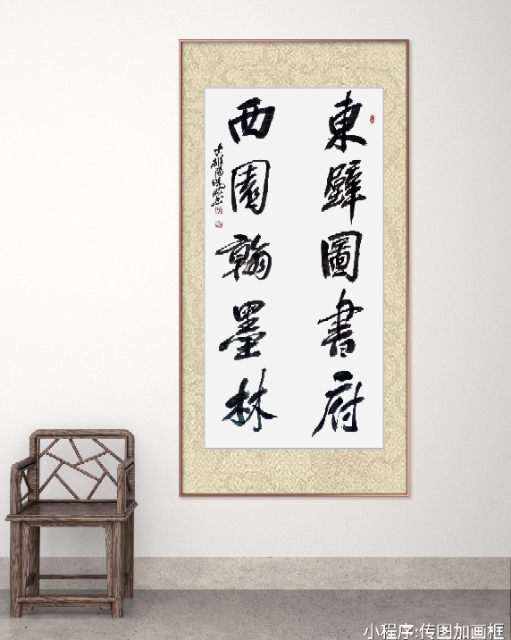 東壁圖書府
西園翰墨林
小程序:传图加画框